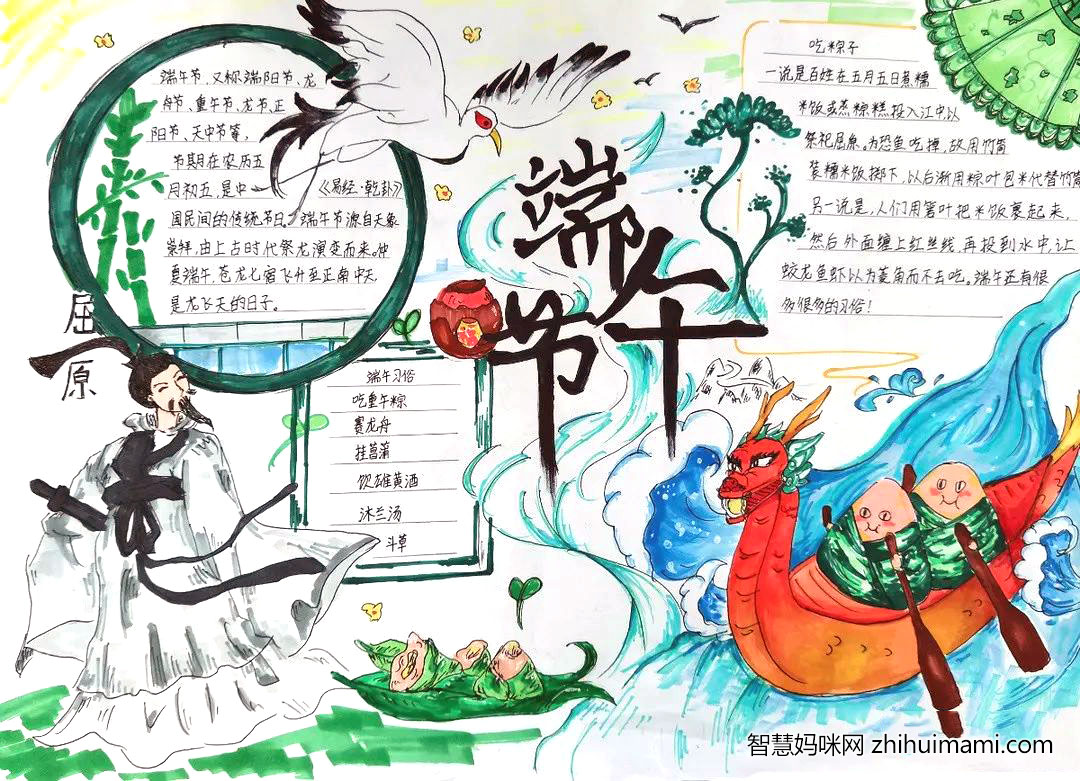 端午节
端午节、又称端阳节、龙
舟节、重午节、龙节、正
阳节、天中节等，
节期在农历五
月初五，是中
《易经·乾卦》
国民间的传统节日。端午节源自天象
崇拜，由上古时代祭龙演变而来。仲
夏端午，苍龙七宿飞升至正南中天，
是龙飞天的日子。
屈原
端午习俗
吃重午粽
赛龙舟
挂菖蒲
饮雄黄酒
沐兰汤
斗草
吃粽子
一说是百姓在五月五日煮糯
米饭或蒸粽糕投入江中以
祭祀屈原。为恐鱼吃掉，故用竹筒
装糯米饭掷下，以后渐用粽叶包米代替竹筒
另一说是，人们用箬叶把米饭裹起来，
然后外面缠上红丝线，再投到水中，让
蛟龙鱼虾以为菱角而不去吃。端午还有很
多很多的习俗！
智慧妈咪网 zhihuimami.com